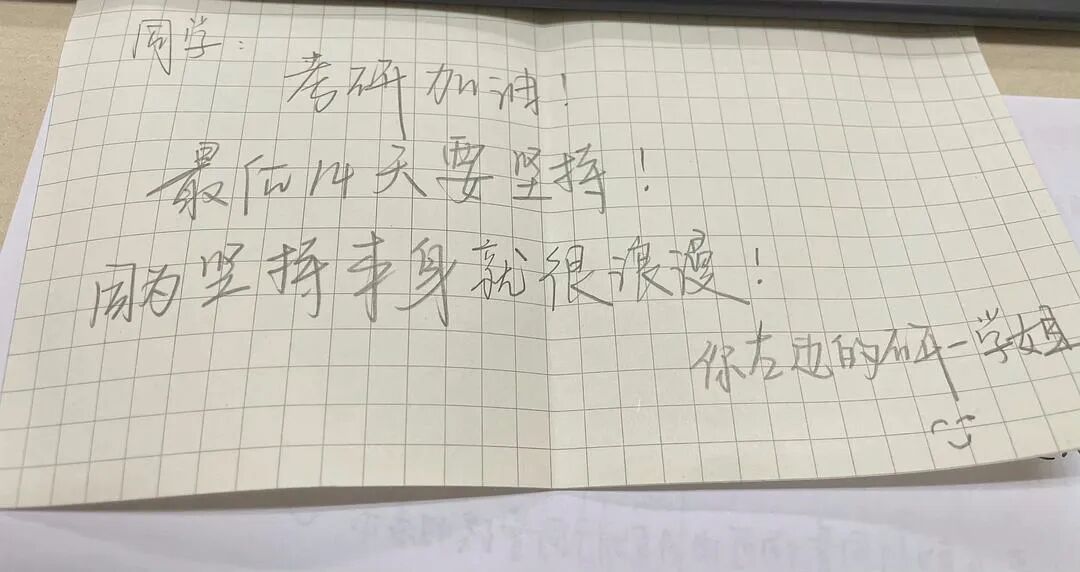 同学：
考研加油！
最后14天要坚持！
因为坚持本身就很浪漫！
你左边的研一学姐